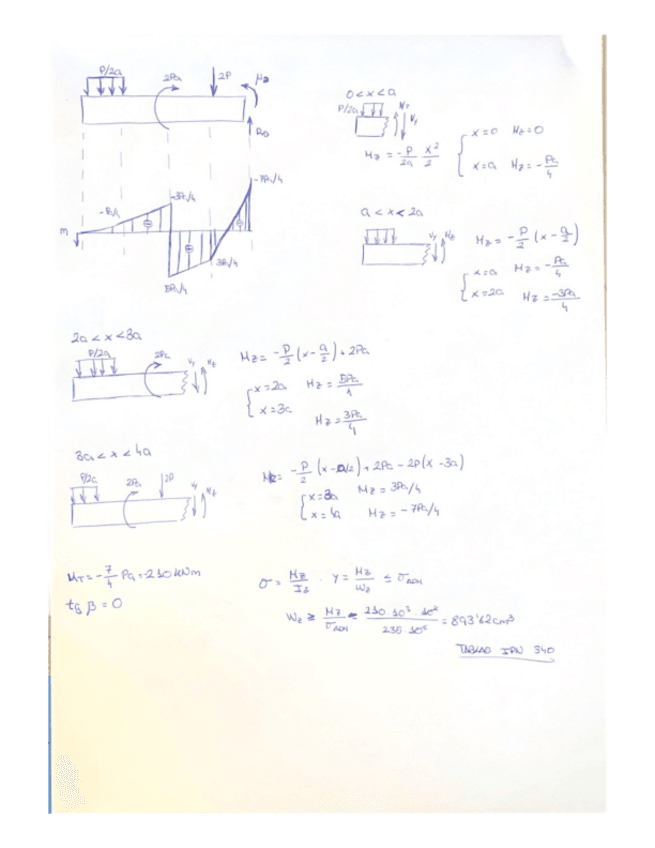 P/2a 2Pa 2P Mz
R0
-7Pa/4
-3Pa/4
m
3Pa/4
5Pa/4
0 < x < a
P/2a
Mz = -P/2a x²/2
x=0 Mz=0
x=a Mz=-Pa/4
a < x < 2a
Mz = -P/2 (x - a/2)
x=a Mz=-Pa/4
x=2a Mz=-3Pa/4
2a < x < 3a
P/2a 2Pa
Mz = -P/2 (x - a/2) + 2Pa
x=2a Mz = 5Pa/4
x=3a
Mz = 3Pa/4
3a < x < 4a
P/2a 2Pa 2P
Mz = -P/2 (x - a/2) + 2Pa - 2P(x - 3a)
x=3a Mz = 3Pa/4
x=4a Mz = -7Pa/4
= -7/4 Pa = 210 kNm
tg β = 0
σ = Mz/Iz · y = Mz/Wz ≤ σADM
Wz ≥ Mz/σADM = 210·10³·10⁶ = 893'62 cm³
TABLAS IPN 340